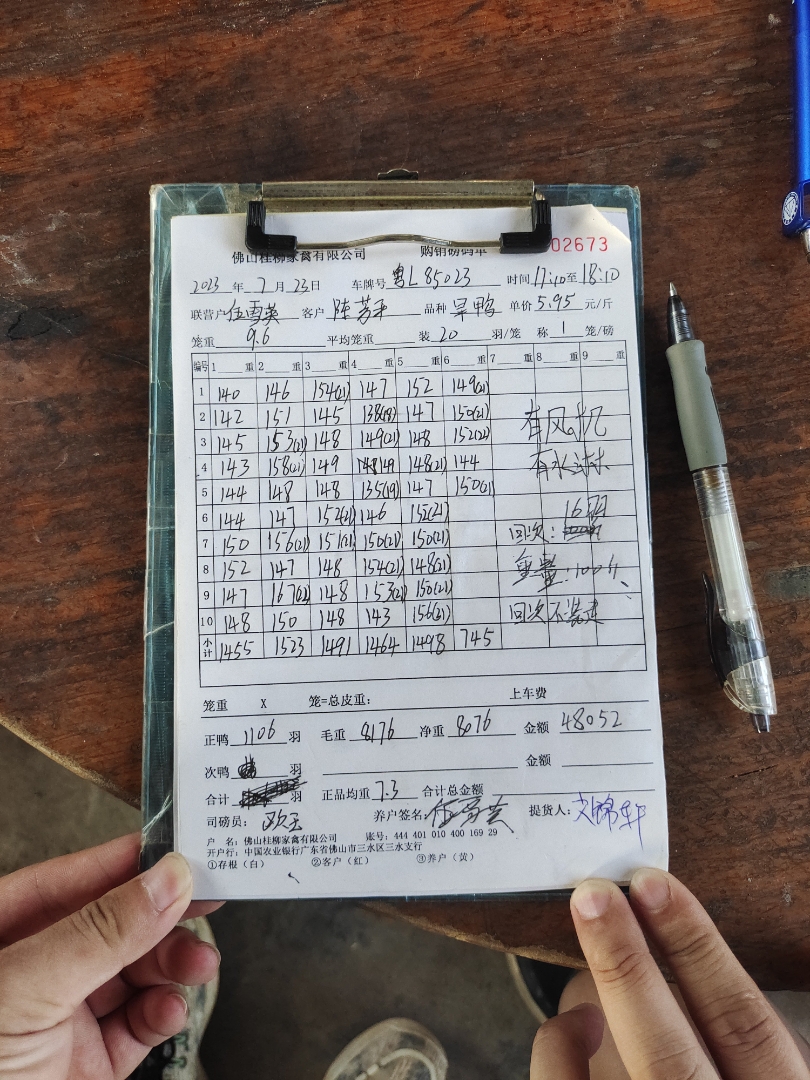 佛山桂柳家禽有限公司 购销磅码单 02673
2023 年 7 月 23 日 车牌号 粤L85023 时间 17:10 至 18:10
联营户 伍雪英 客户 陈芳平 品种 旱鸭 单价 5.95 元/斤
笼重 9.6 平均笼重 装 20 羽/笼 称 1 笼/磅
编号 1 重 2 重 3 重 4 重 5 重 6 重 7 重 8 重 9 重
1 140 146 154(21) 147 152 149(21)
2 142 151 145 138(19) 147 150(21)
3 145 153(21) 148 149(21) 148 152(22) 有风机
4 143 158(21) 149 149 148(21) 144 有水
5 144 148 148 135(19) 147 150(21)
6 144 147 152(21) 146 152(21) 16只
7 150 156(21) 151(21) 150(21) 150(21) 回次:
8 152 147 148 154(21) 148(21) :100斤
9 147 167(22) 148 153(21) 150(21)
10 148 150 148 143 156(21) 回次不装走
小计 1455 1523 1491 1464 1498 745
笼重 X 笼=总皮重: 上车费
正鸭 1106 羽 毛重 8176 净重 8076 金额 48052
次鸭 羽 金额
合计 羽 正品均重 7.3 合计总金额
司磅员: 养户签名: 提货人:
户 名: 佛山桂柳家禽有限公司 账号: 444 401 010 400 169 29
开户行: 中国农业银行广东省佛山市三水区三水支行
①存根（白） ②客户（红） ③养户（黄）